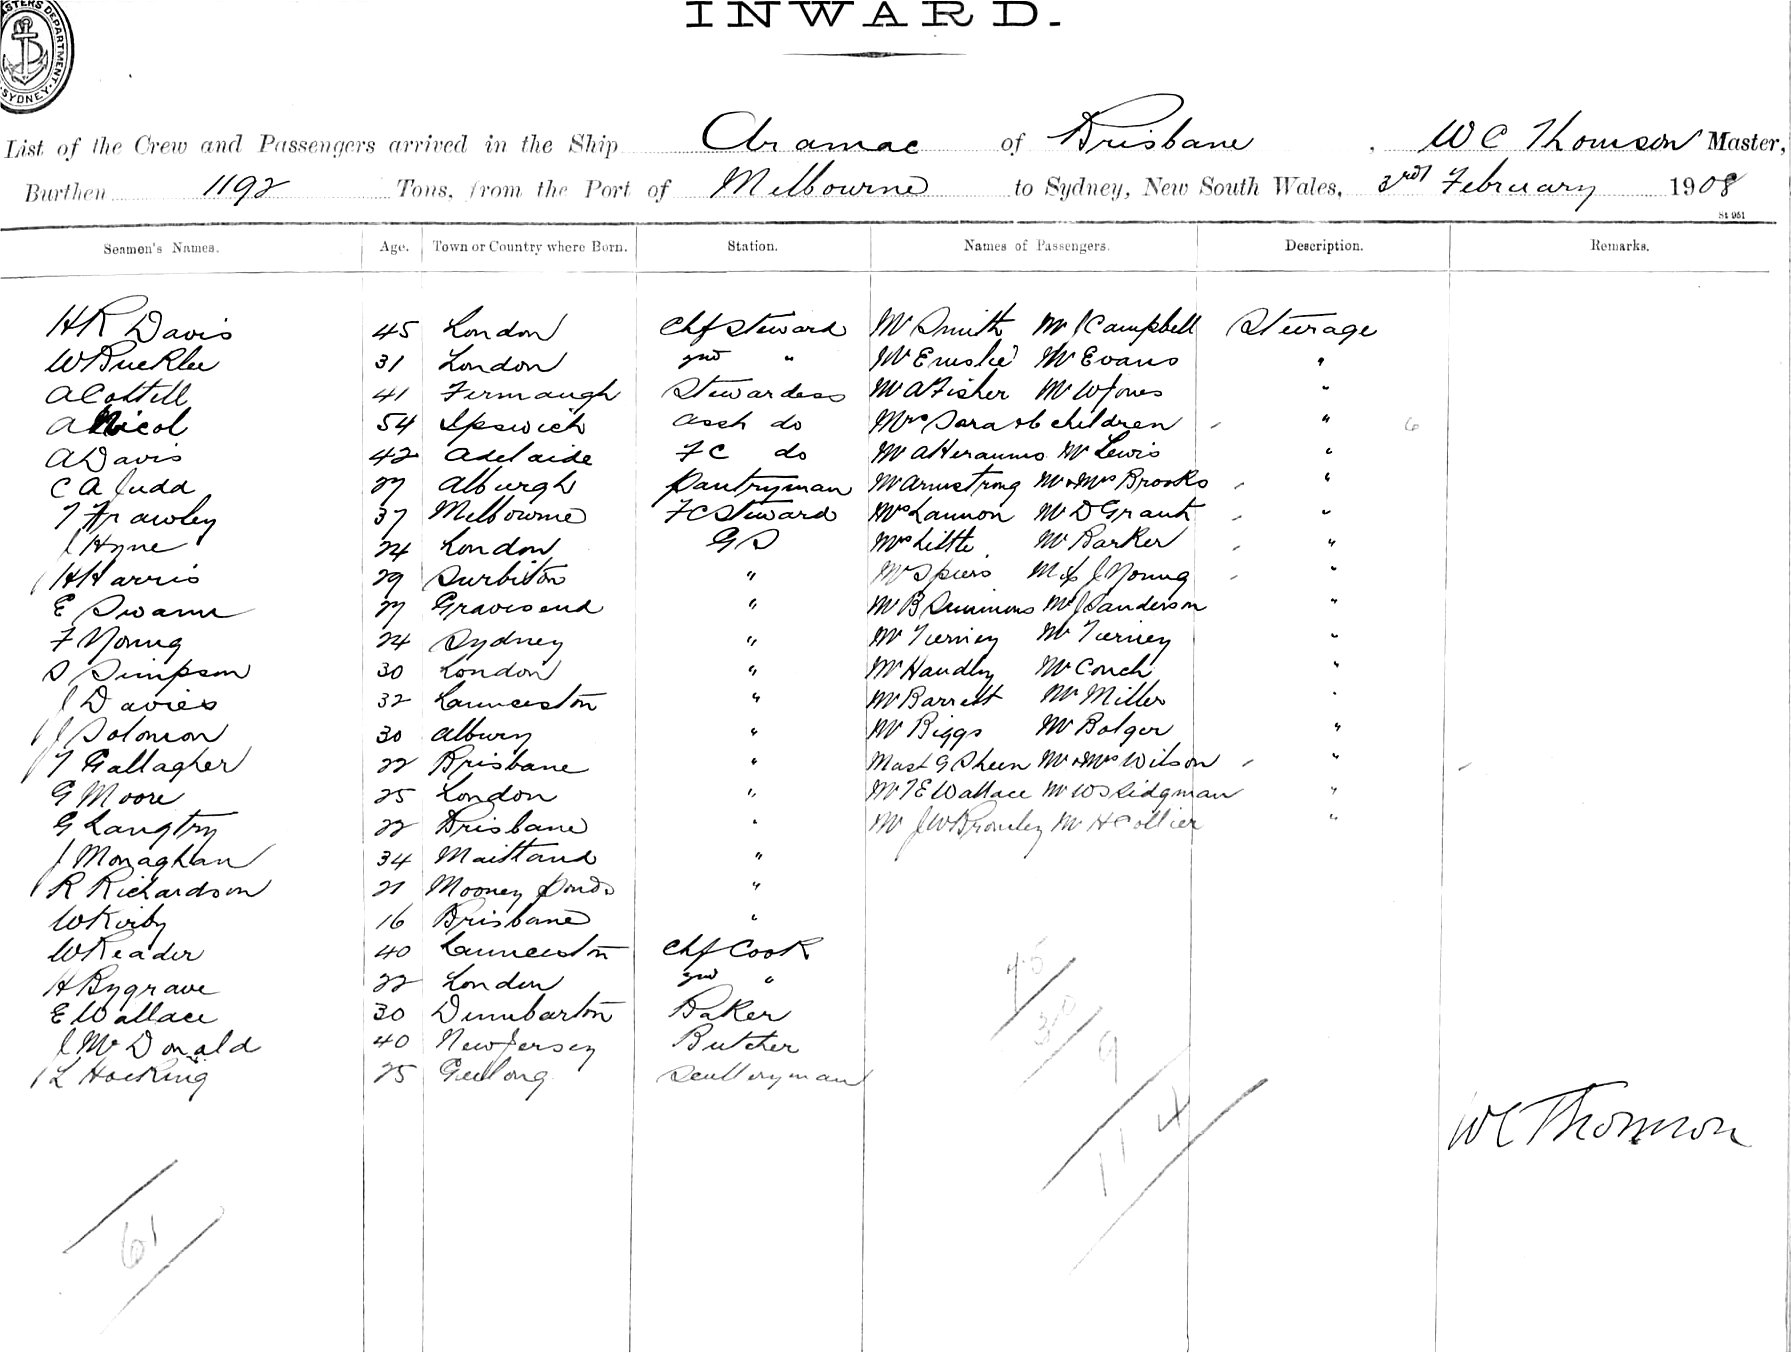 INWARD.
MASTERS DEPARTMENT SYDNEY
List of the Crew and Passengers arrived in the Ship Aramac of Brisbane, W C Thomson Master,
Burthen 1192 Tons, from the Port of Melbourne to Sydney, New South Wales, 3rd February 1908
St 951
Seamen's Names. Age. Town or Country where Born. Station. Names of Passengers. Description. Remarks.
H R Davis 45 London Chf Steward Mr Smith Mr J Campbell Steurage
W Bucklee 31 London 2nd " Mr Emslie Mr Evans "
A Cottell 41 Fermaugh Stewardess Mr A Fisher Mr W Jones "
A Nicol 54 Ipswich asst do Mrs Sara & 6 children " 6
A Davis 42 Adelaide F C do Mr A Mr Lewis "
C A Judd 27 Alburgh Pantryman Mr Armstrong Mr & Mrs Brooks "
T Frawley 37 Melbourne F C Steward Mrs Lannon Mr D Grant "
J Hyne 24 London G S Mrs Little Mr Barker "
H Harris 29 Surbiton " Mr Spiers J Young "
E Swann 27 Gravesend " Mr B Simmons Mr J Sanderson "
F Young 24 Sydney " Mr Tierney Mr Tierney "
S Simpson 30 London " Mr Handley Mr Couch "
J Davies 32 Launceston " Mr Barrett Mr Miller "
J Solomon 30 Albury " Mr Biggs Mr Bolger "
T Gallagher 22 Brisbane " Mast G Sheen Mr & Mrs Wilson "
G Moore 25 London " Mr T E Wallace Mr W S Lidgman "
G Langtry 22 Brisbane " Mr J W Bromley Mr H Collier "
J Monaghan 34 Maitland "
R Richardson 21 Mooney Ponds "
W Kirby 16 Brisbane "
W Reader 40 Launceston Chf Cook
H Bygrave 22 London 2nd "
E Wallace 30 Dumbarton Baker
J McDonald 40 New Jersey Butcher
L Hocking 25 Geelong Sculleryman
45
30
9
114
W C Thomson
61